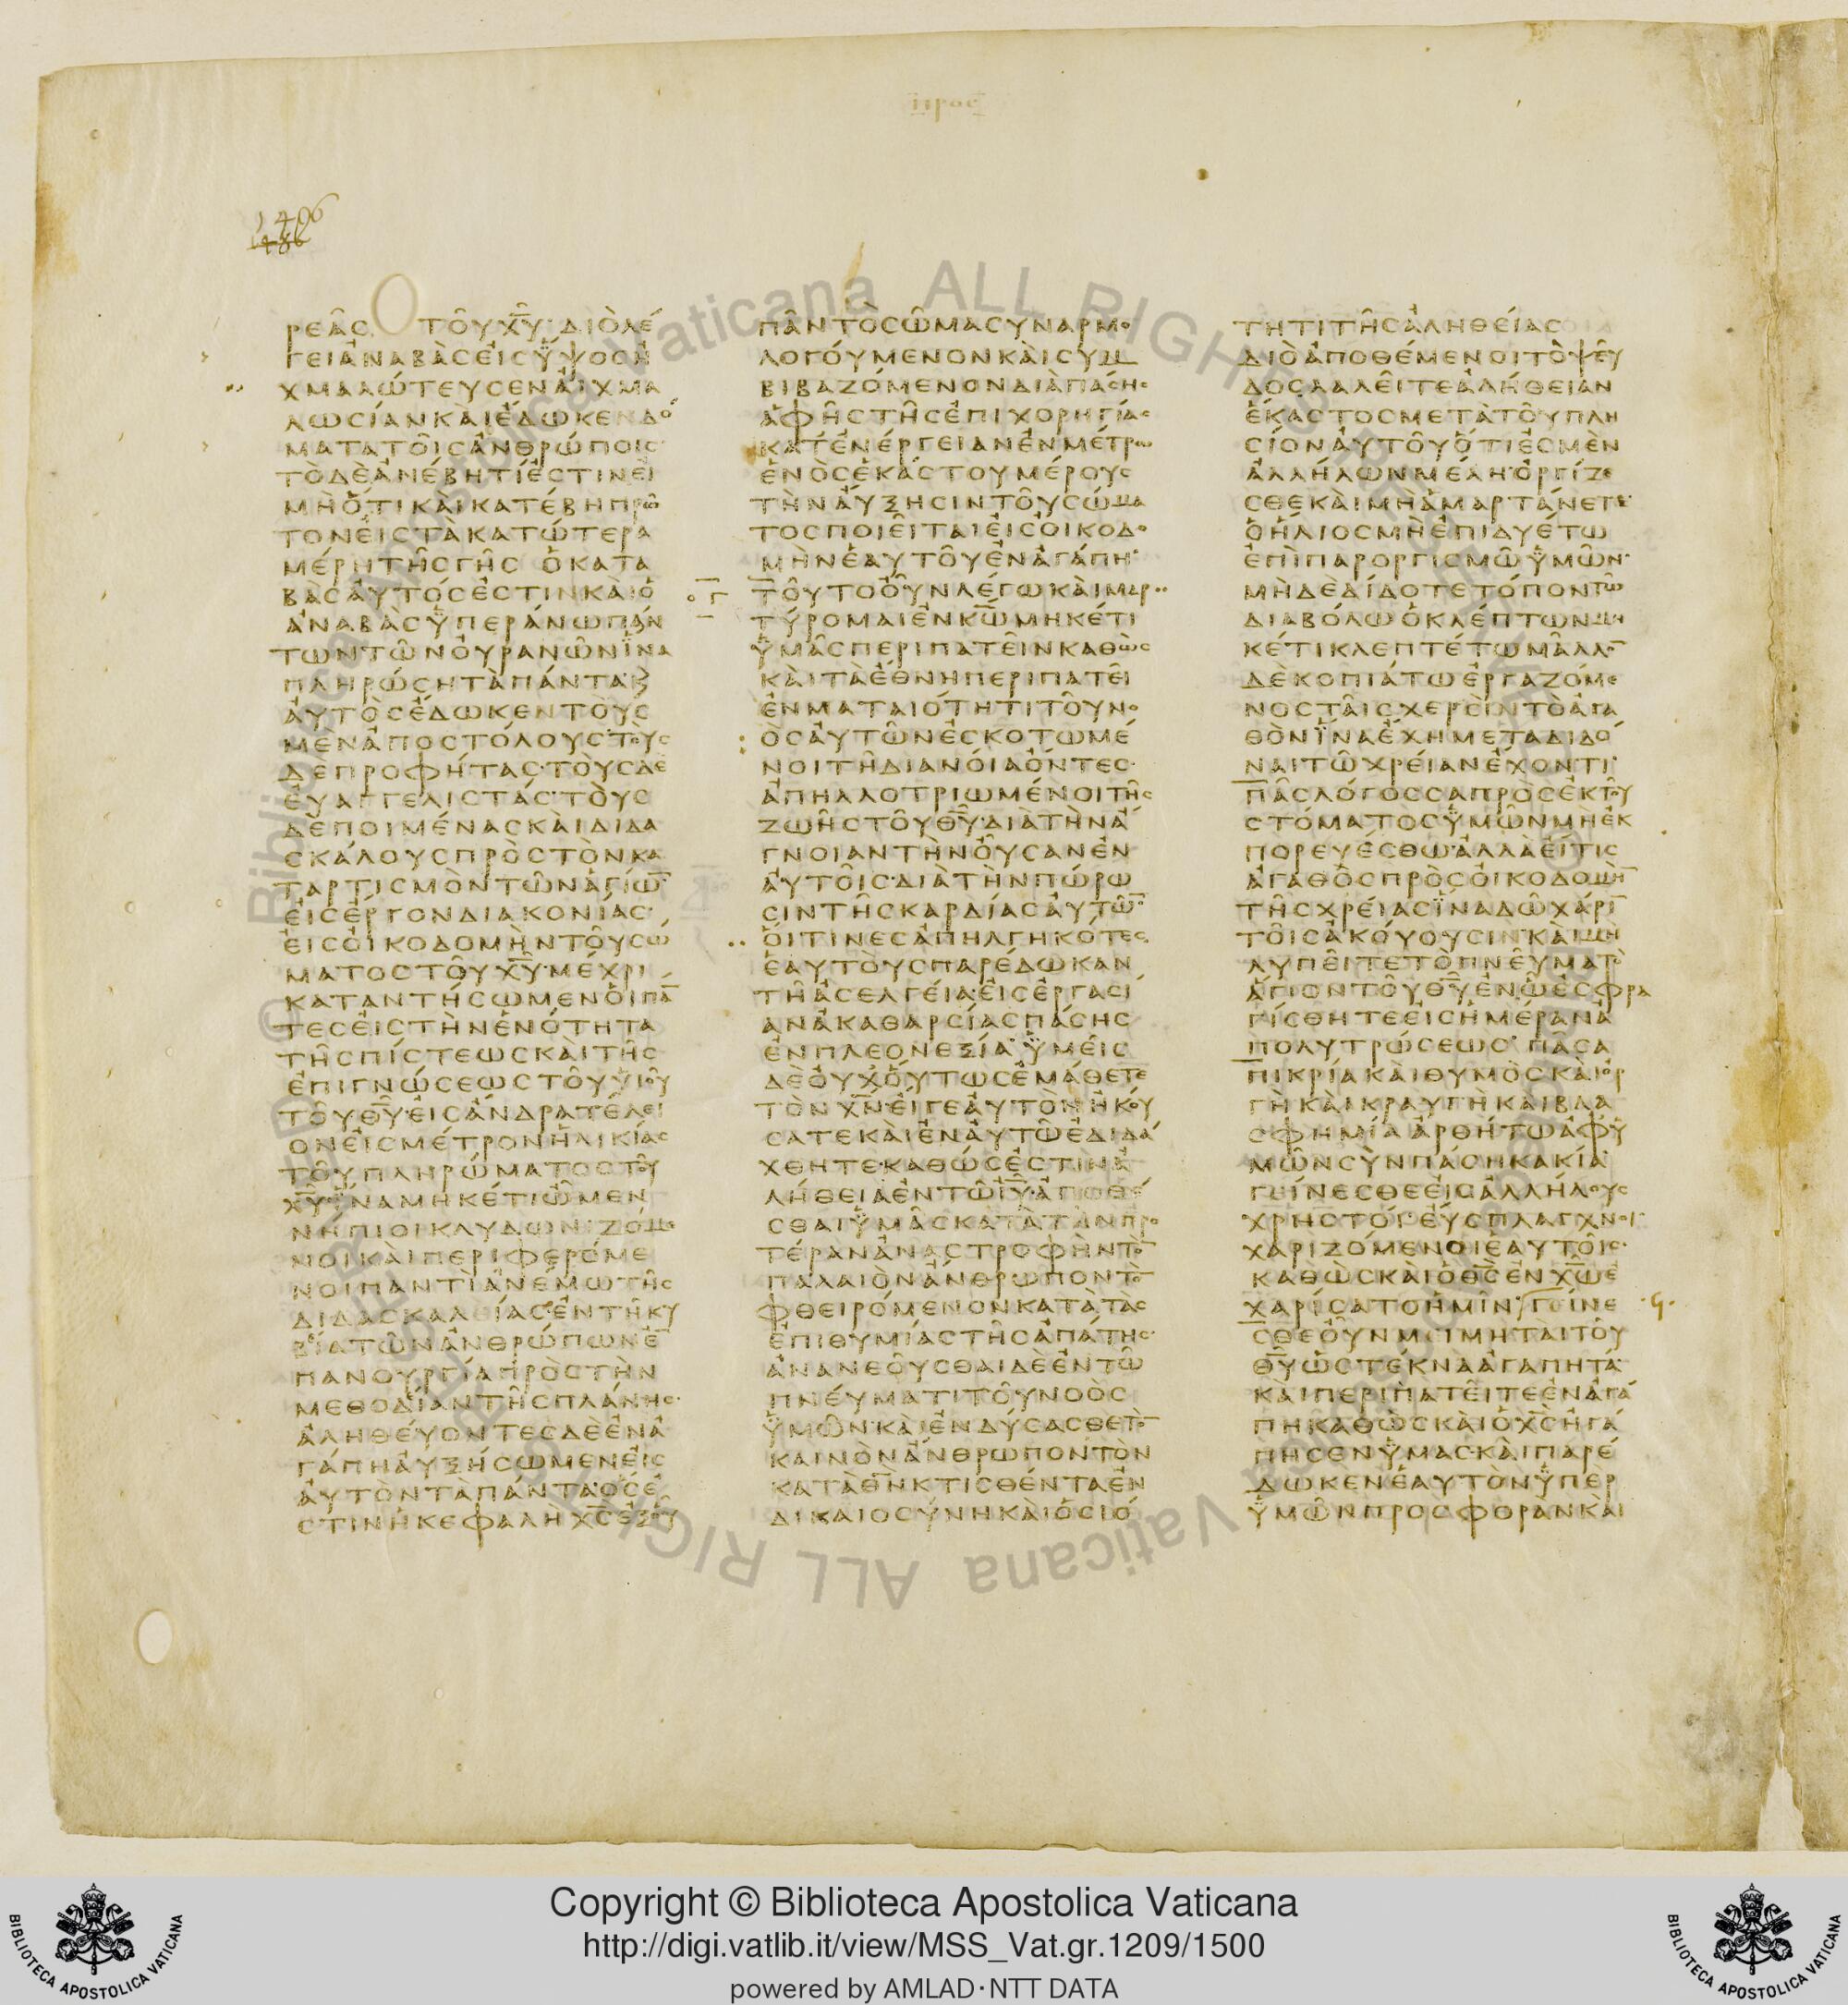 1496
ρεᾶς τοῦ χ̅υ̅· διὸ λέ
γει ἀναβὰς εἰς ὕψος ᾐ
χμαλώτευσεν αἰχμα
λωσίαν καὶ ἔδωκεν δό
ματα τοῖς ἀνθρώποις·
τὸ δὲ ἀνέβη τί ἐστιν εἰ
μὴ ὅτι καὶ κατέβη πρῶ
τον εἰς τὰ κατώτερα
μέρη τῆς γῆς ὁ κατα
βὰς αὐτός ἐστιν καὶ ὁ
ἀναβὰς ὑπεράνω πάν
των τῶν οὐρανῶν ἵνα
πληρώσῃ τὰ πάντα· κ
αὐτὸς ἔδωκεν τοὺς
μὲν ἀποστόλους· τοὺς
δὲ προφήτας· τοὺς δὲ
εὐαγγελιστάς· τοὺς
δὲ ποιμένας καὶ διδα
σκάλους πρὸς τὸν κα
ταρτισμὸν τῶν ἁγίω̅·
εἰς ἔργον διακονίας·
εἰς οἰκοδομὴν τοῦ σώ
ματος τοῦ χ̅υ̅· μέχρι
καταντήσωμεν οἱ πά̅
τες εἰς τὴν ἑνότητα
τῆς πίστεως καὶ τῆς
ἐπιγνώσεως τοῦ υἱοῦ
τοῦ θ̅υ̅· εἰς ἄνδρα τέλει
ον εἰς μέτρον ἡλικίας
τοῦ πληρώματος τοῦ
χ̅υ̅· ἵνα μηκέτι ὦμεν
νήπιοι κλυδωνιζόμε
νοι καὶ περιφερόμε
νοι παντὶ ἀνέμω τῆς
διδασκαλίας· ἐν τῇ κυ
βεία τῶν ἀνθρώπων ἐ̅
πανουργία πρὸς τὴν
μεθοδίαν τῆς πλάνης·
ἀληθεύοντες δὲ ἐν ἀ
γάπη αὐξήσωμεν εἰς
αὐτὸν τὰ πάντα· ὅς ἐ
στιν ἡ κεφαλὴ χ̅ς̅ ἐξ οὗ
πᾶν τὸ σῶμα συναρμο
λογούμενον καὶ συμ
βιβαζόμενον διὰ πάσης
ἁφῆς τῆς ἐπιχορηγίας
κατ᾽ ἐνέργειαν ἐν μέτρω
ἑνὸς ἑκάστου μέρους
τὴν αὔξησιν τοῦ σώμα
τος ποιεῖται εἰς οἰκοδο
μὴν ἑαυτοῦ ἐν ἀγάπη·
τοῦτο οὖν λέγω καὶ μαρ
τύρομαι ἐν κ̅ω̅ μηκέτι
ὑμᾶς περιπατεῖν καθὼς
καὶ τὰ ἔθνη περιπατεῖ
ἐν ματαιότητι τοῦ νο
ὸς αὐτῶν ἐσκοτωμέ
νοι τῇ διανοία ὄντες·
ἀπηλλοτριωμένοι τῆς
ζωῆς τοῦ θ̅υ̅· διὰ τὴν ἄ
γνοιαν τὴν οὖσαν ἐν
αὐτοῖς· διὰ τὴν πώρω
σιν τῆς καρδίας αὐτῶ̅·
οἵτινες ἀπηλγηκότες
ἑαυτοὺς παρέδωκαν
τῇ ἀσελγεία· εἰς ἐργασί
αν ἀκαθαρσίας πάσης
ἐν πλεονεξία· ὑμεῖς
δὲ οὐχ οὕτως ἐμάθετε
τὸν χ̅ν̅· εἴγε αὐτὸν ἠκού
σατε καὶ ἐν αὐτῶ ἐδιδά
χθητε· καθώς ἐστὶν ἀ
λήθεια ἐν τῶ ι̅υ̅· ἀποθέ
σθαι ὑμᾶς κατὰ τὴν προ
τέραν ἀναστροφὴν τὸ̅
παλαιὸν ἄνθρωπον τὸ̅
φθειρόμενον κατὰ τὰς
ἐπιθυμίας τῆς ἀπάτης·
ἀνανεοῦσθαι δὲ ἐν τῶ
πνεύματι τοῦ νοὸς
ὑμῶν· καὶ ἐνδύσασθε τὸ̅
καινὸν ἄνθρωπον τὸν
κατὰ θ̅ν̅ κτισθέντα ἐν
δικαιοσύνη καὶ ὁσιό
τητι τῆς ἀληθείας
διὸ ἀποθέμενοι τὸ ψεῦ
δος λαλεῖτε ἀλήθειαν
ἕκαστος μετὰ τοῦ πλη
σίον αὐτοῦ ὅτι ἐσμὲν
ἀλλήλων μέλη· ὀργίζε
σθε καὶ μὴ ἁμαρτάνετε·
ὁ ἥλιος μὴ ἐπιδυέτω
ἐπὶ παροργισμῶ ὑμῶν·
μηδὲ δίδοτε τόπον τῶ
διαβόλω ὁ κλέπτων μη
κέτι κλεπτέτω μᾶλλο̅
δὲ κοπιάτω ἐργαζόμε
νος ταῖς χερσὶν τὸ ἀγα
θὸν ἵνα ἔχη μεταδιδό
ναι τῶ χρείαν ἔχοντι·
πᾶς λόγος σαπρὸς ἐκ τοῦ
στόματος ὑμῶν μὴ ἐκ
πορευέσθω· ἀλλὰ εἴ τις
ἀγαθὸς πρὸς οἰκοδομὴ̅
τῆς χρείας ἵνα δῶ χάρι̅
τοῖς ἀκούουσιν· καὶ μὴ
λυπεῖτε τὸ πνεῦμα τὸ
ἅγιον τοῦ θ̅υ̅ ἐν ᾧ ἐσφρα
γίσθητε εἰς ἡμέραν ἀ
πολυτρώσεως· πᾶσα
πικρία καὶ θυμὸς καὶ ὀρ
γὴ καὶ κραυγὴ καὶ βλα
σφημία ἀρθήτω ἀφ᾽ ὑ
μῶν σὺν πάση κακία·
γείνεσθε εἰς ἀλλήλους
χρηστοί· εὔσπλαγχνοι·
χαριζόμενοι ἑαυτοῖς·
καθὼς καὶ ὁ θ̅ς̅ ἐν χ̅ω̅ ἐ
χαρίσατο ἡμῖν· γείνε
σθε οὖν μιμηταὶ τοῦ
θ̅υ̅ ὡς τέκνα ἀγαπητά·
καὶ περιπατεῖτε ἐν ἀγά
πη καθὼς καὶ ὁ χ̅ς̅ ἠγά
πησεν ὑμᾶς· καὶ παρέ
δωκεν ἑαυτὸν ὑπὲρ
ὑμῶν προσφορὰν καὶ
Copyright © Biblioteca Apostolica Vaticana
http://digi.vatlib.it/view/MSS_Vat.gr.1209/1500
powered by AMLAD·NTT DATA
BIBLIOTECA APOSTOLICA VATICANA
BIBLIOTECA APOSTOLICA VATICANA